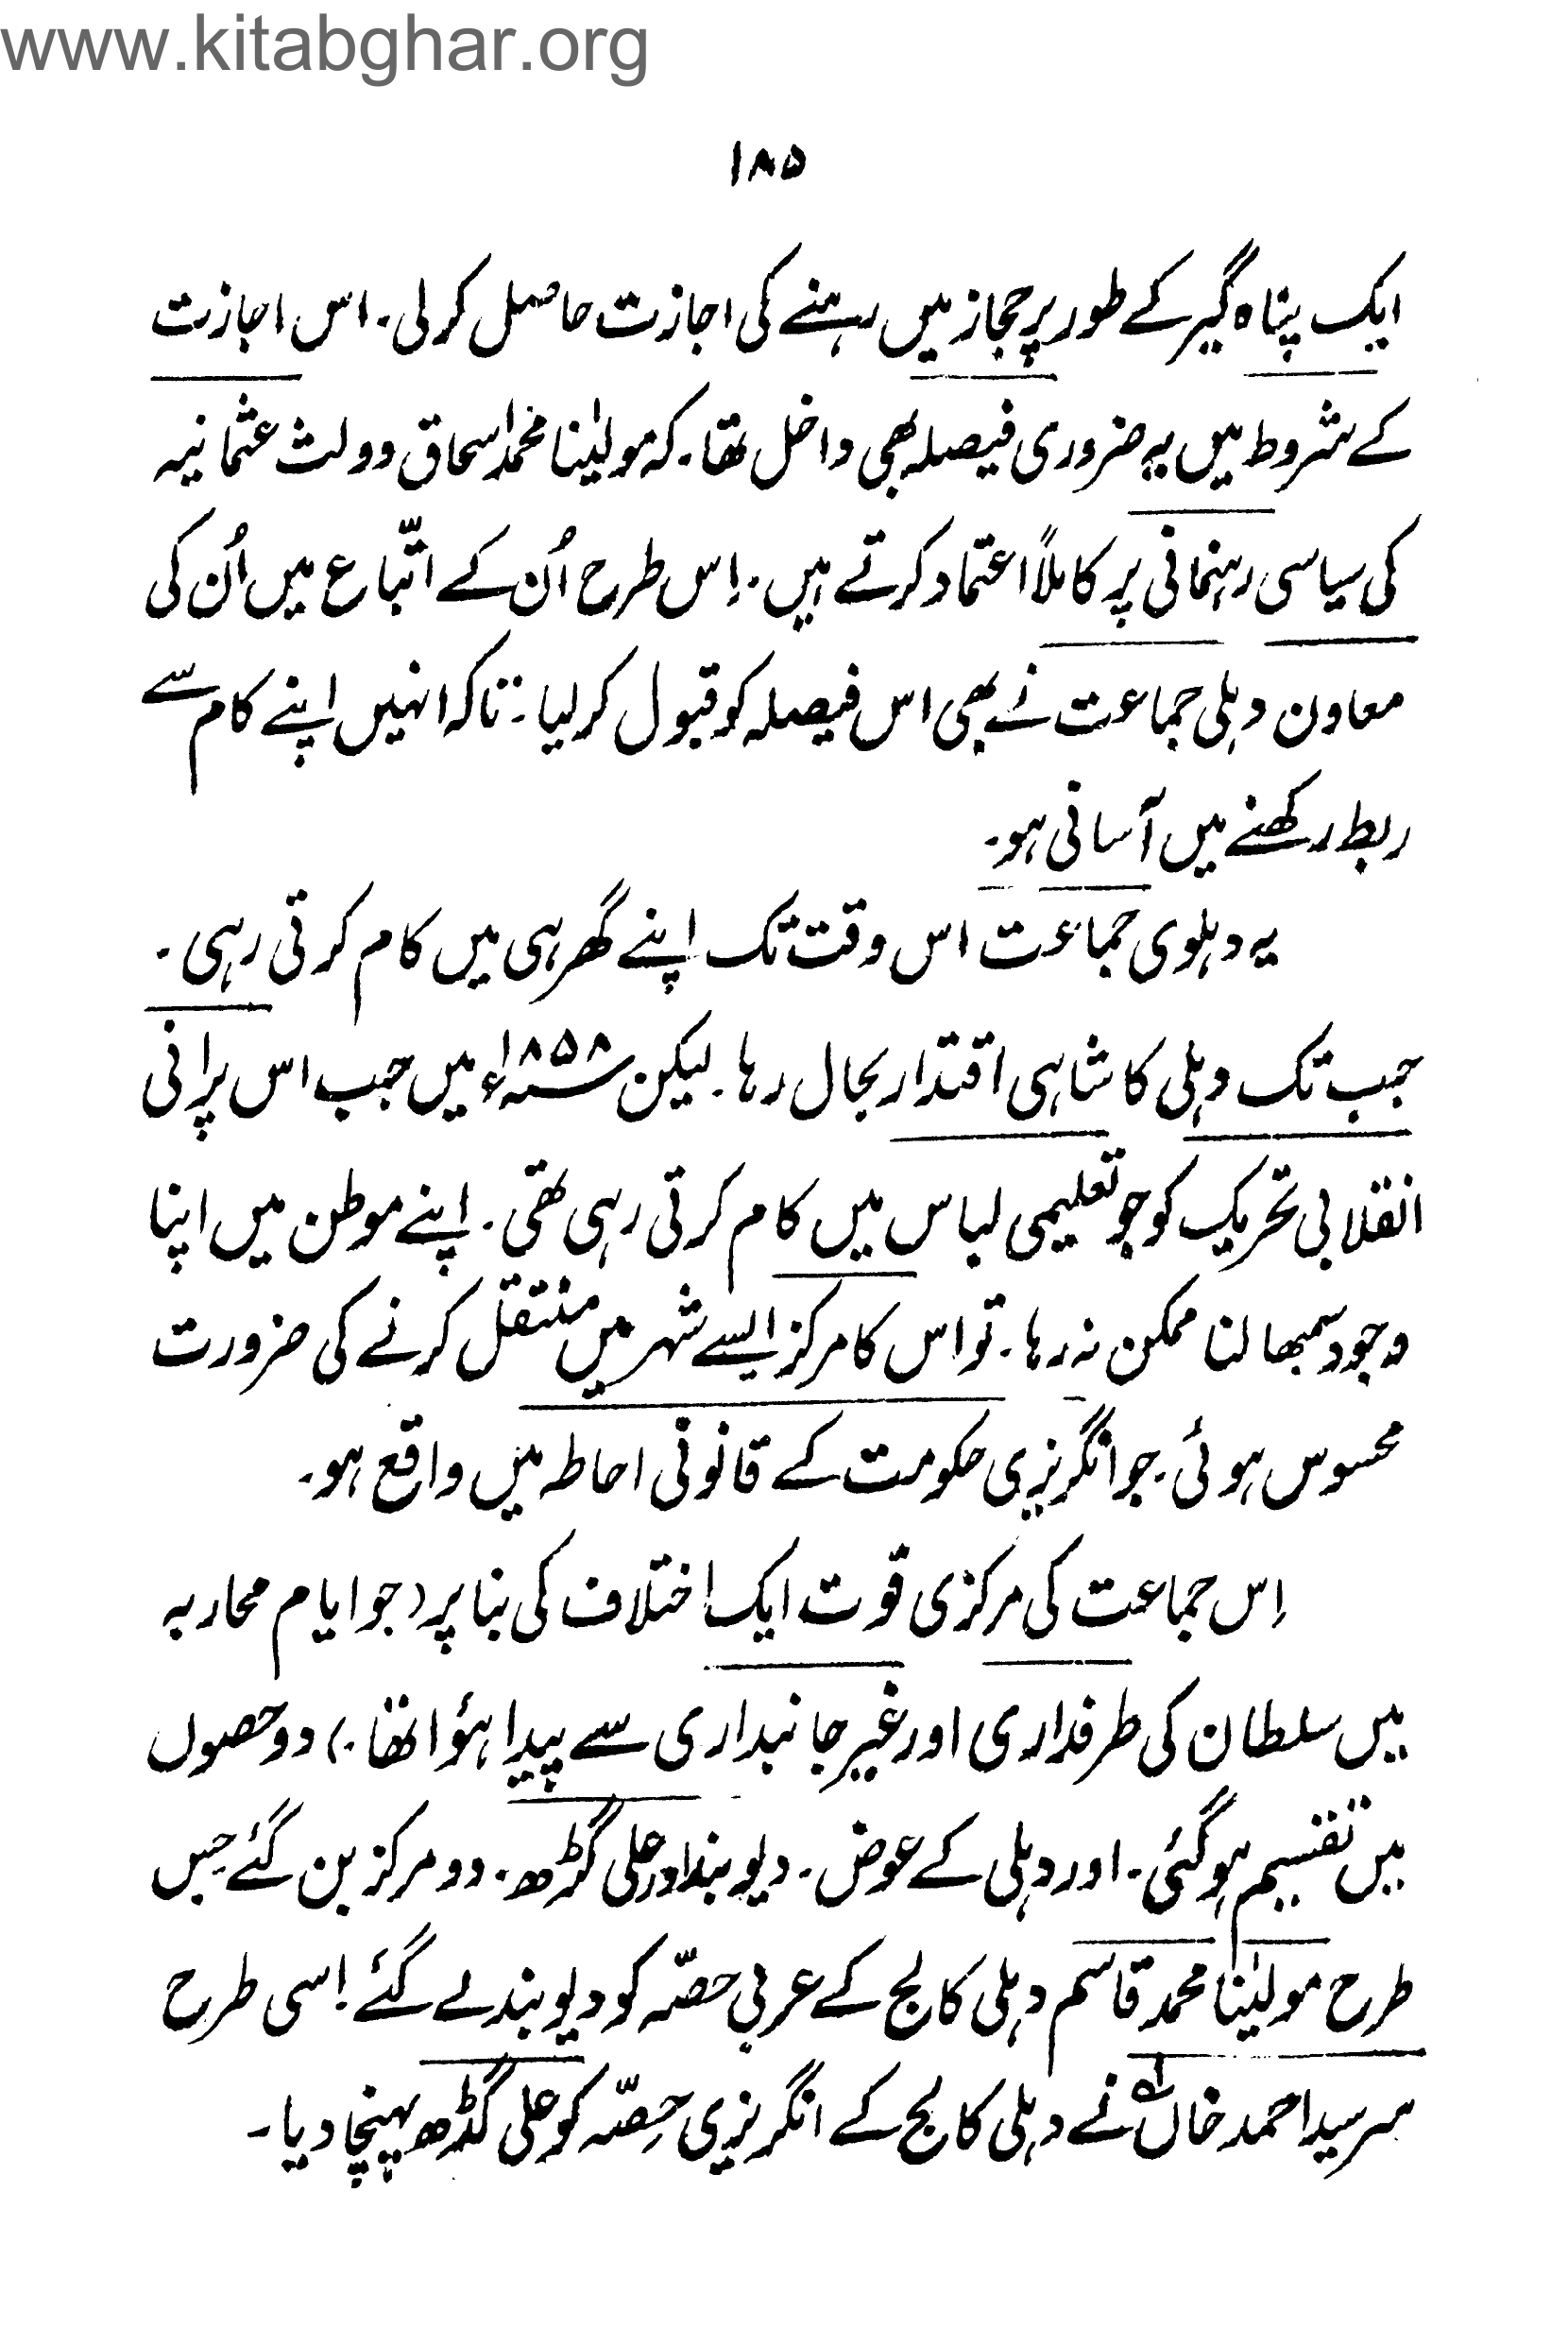 www.kitabghar.org
۱۸۵
ایک پناہ گیر کے طور پر حجاز میں رہنے کی اجازت حاصل کر لی۔ اس اجازت
کے شروط میں یہ ضروری فیصلہ بھی داخل تھا۔ کہ مولینٰا محمد اسحاق دولت عثمانیہ
کی سیاسی رہنمائی پر کاملاً اعتماد کرتے ہیں۔ اِس طرح اُن کے اتّباع میں اُن کی
معاون دہلی جماعت نے بھی اس فیصلہ کو قبول کر لیا۔ تاکہ انہیں اپنے کام سے
ربط رکھنے میں آسانی ہو۔
یہ دہلوی جماعت اس وقت تک اپنے گھر ہی میں کام کرتی رہی۔
جب تک دہلی کا شاہی اقتدار بحال رہا۔ لیکن ۱۸۵۸ء میں جب اس پرانی
انقلابی تحریک کو جو تعلیمی لباس میں کام کرتی رہی تھی۔ اپنے موطن میں اپنا
وجود سمبھالنا ممکن نہ رہا۔ تو اس کا مرکز ایسے شہر میں منتقل کرنے کی ضرورت
محسوس ہوئی۔ جو انگریزی حکومت کے قانونی احاطہ میں واقع ہو۔
اِس جماعت کی مرکزی قوت ایک اختلاف کی بنا پر (جو ایام محاربہ
میں سلطان کی طرفداری اور غیر جانبداری سے پیدا ہؤا تھا۔) دو حصوں
میں تقسیم ہو گئی۔ اور دہلی کے عوض۔ دیوبند اور علی گڑھ۔ دو مرکز بن گئے جس
طرح مولینٰا محمد قاسم دہلی کالج کے عربی حصّہ کو دیوبند لے گئے۔ اسی طرح
سر سید احمد خاں نے دہلی کالج کے انگریزی حِصّہ کو علی گڈھ پہنچا دیا۔